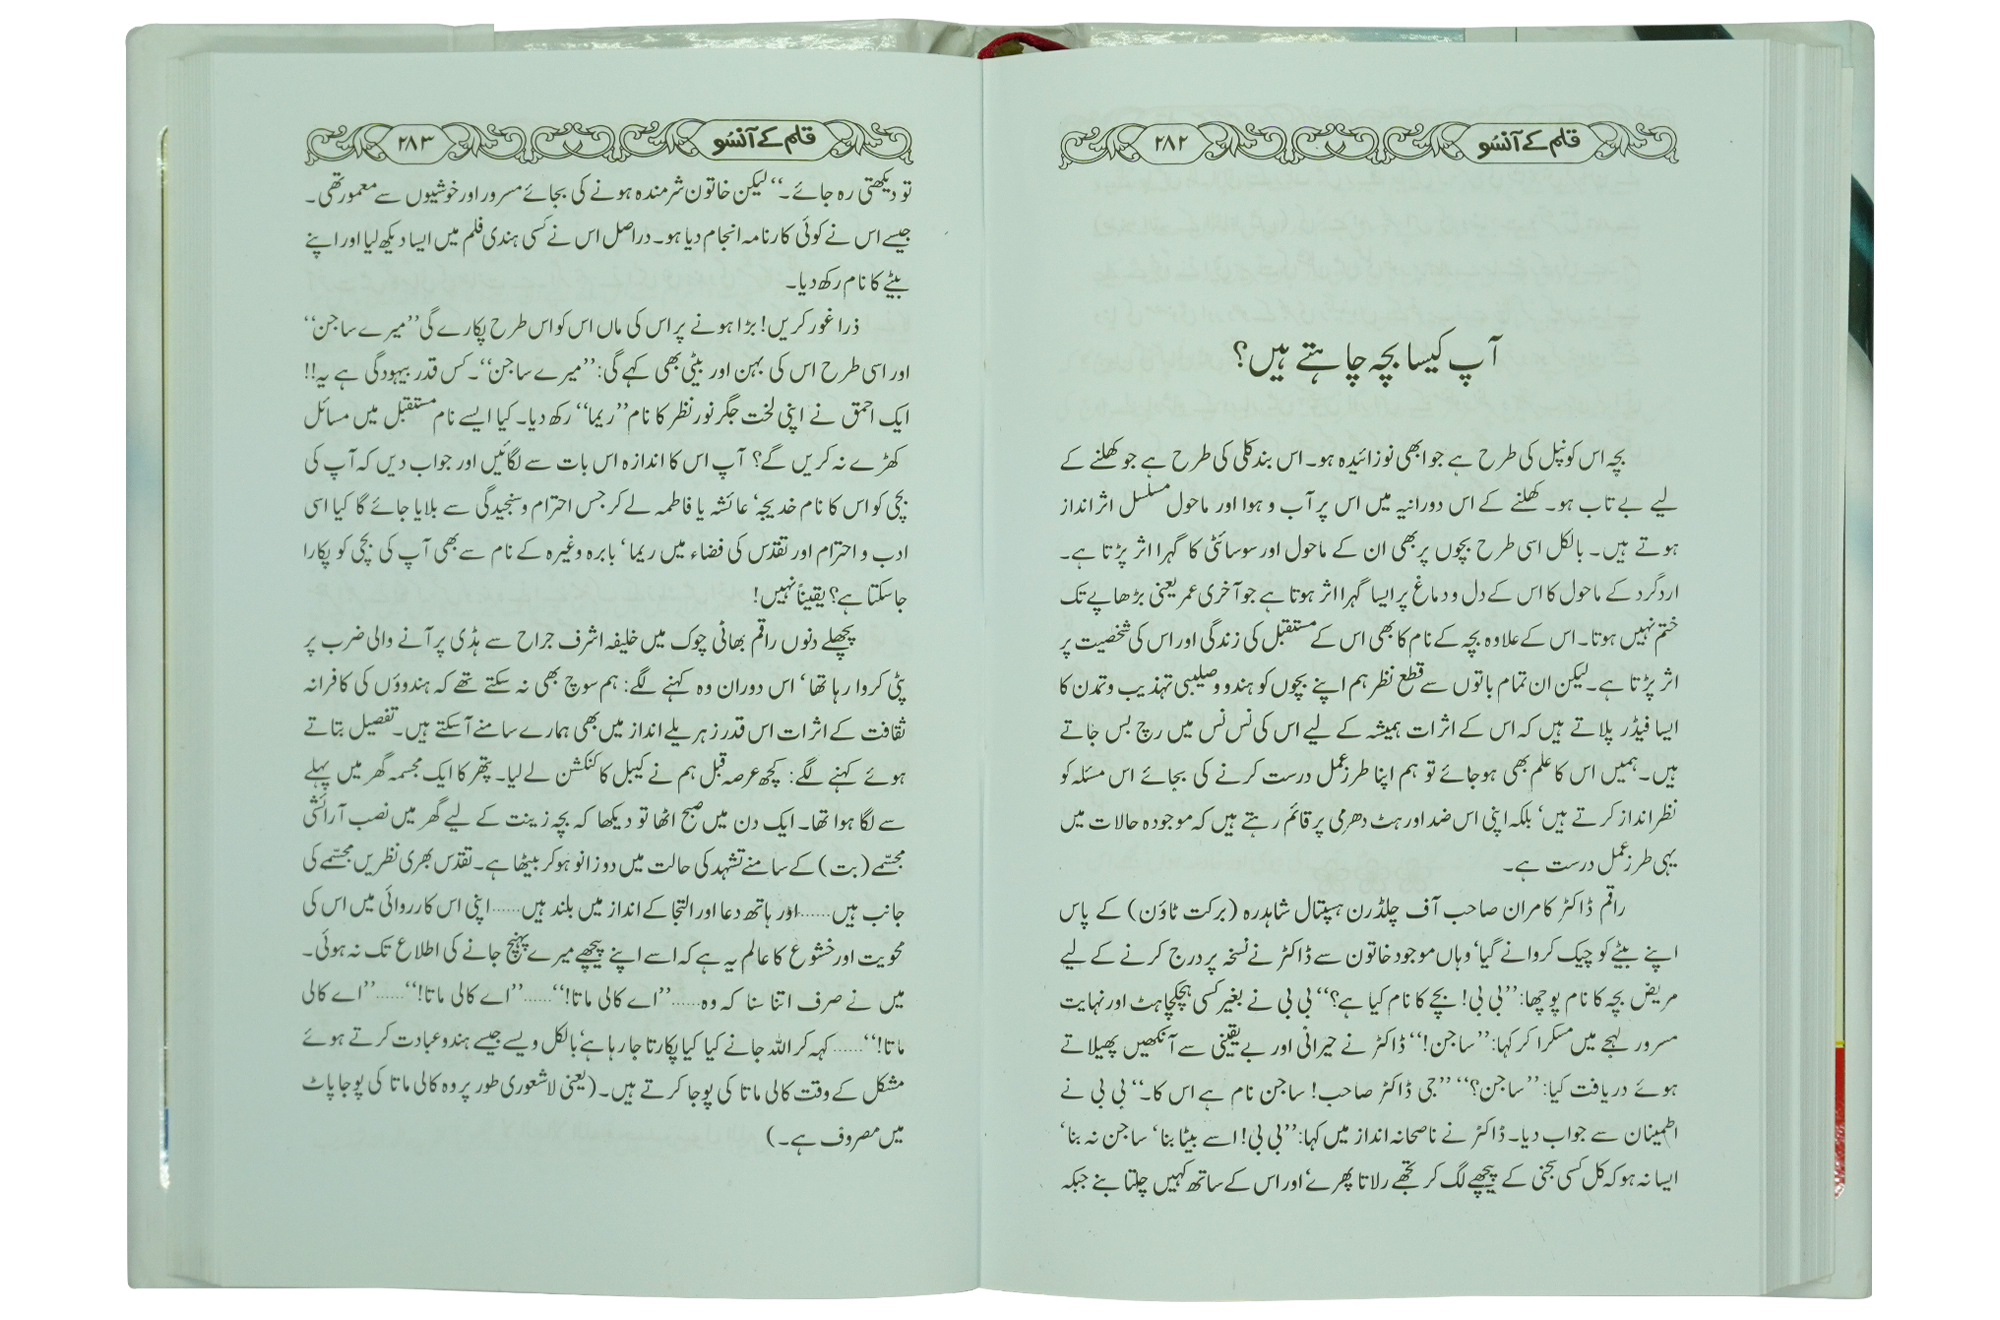 قلم کے آنسو ۲۸۲
آپ کیسا بچہ چاہتے ہیں؟
بچہ اس کونپل کی طرح ہے جو ابھی نوزائیدہ ہو۔ اس بند کلی کی طرح ہے جو کھلنے کے
لیے بے تاب ہو۔ کھلنے کے اس دورانیہ میں اس پر آب و ہوا اور ماحول مسلسل اثر انداز
ہوتے ہیں۔ بالکل اسی طرح بچوں پر بھی ان کے ماحول اور سوسائٹی کا گہرا اثر پڑتا ہے۔
اردگرد کے ماحول کا اس کے دل و دماغ پر ایسا گہرا اثر ہوتا ہے جو آخری عمر یعنی بڑھاپے تک
ختم نہیں ہوتا۔ اس کے علاوہ بچہ کے نام کا بھی اس کے مستقبل کی زندگی اور اس کی شخصیت پر
اثر پڑتا ہے۔ لیکن ان تمام باتوں سے قطع نظر ہم اپنے بچوں کو ہندو وصلیبی تہذیب و تمدن کا
ایسا فیڈر پلاتے ہیں کہ اس کے اثرات ہمیشہ کے لیے اس کی نس نس میں رچ بس جاتے
ہیں۔ ہمیں اس کا علم بھی ہو جائے تو ہم اپنا طرزِ عمل درست کرنے کی بجائے اس مسئلہ کو
نظر انداز کرتے ہیں‘ بلکہ اپنی اس ضد اور ہٹ دھرمی پر قائم رہتے ہیں کہ موجودہ حالات میں
یہی طرزِ عمل درست ہے۔
راقم ڈاکٹر کامران صاحب آف چلڈرن ہسپتال شاہدرہ (برکت ٹاؤن) کے پاس
اپنے بیٹے کو چیک کروانے گیا‘ وہاں موجود خاتون سے ڈاکٹر نے نسخہ پر درج کرنے کے لیے
مریض بچہ کا نام پوچھا: ’’بی بی! بچے کا نام کیا ہے؟‘‘ بی بی نے بغیر کسی ہچکچاہٹ اور نہایت
مسرور لہجے میں مسکرا کر کہا: ’’ساجن!‘‘ ڈاکٹر نے حیرانی اور بے یقینی سے آنکھیں پھیلاتے
ہوئے دریافت کیا: ’’ساجن؟‘‘ ’’جی ڈاکٹر صاحب! ساجن نام ہے اس کا۔‘‘ بی بی نے
اطمینان سے جواب دیا۔ ڈاکٹر نے ناصحانہ انداز میں کہا: ’’بی بی! اسے بیٹا بنا‘ ساجن نہ بنا‘
ایسا نہ ہو کہ کل کسی سجنی کے پیچھے لگ کر تجھے رلاتا پھرے‘ اور اس کے ساتھ کہیں چلتا بنے جبکہ
قلم کے آنسو ۲۸۳
تو دیکھتی رہ جائے۔‘‘ لیکن خاتون شرمندہ ہونے کی بجائے مسرور اور خوشیوں سے معمور تھی۔
جیسے اس نے کوئی کارنامہ انجام دیا ہو۔ دراصل اس نے کسی ہندی فلم میں ایسا دیکھ لیا اور اپنے
بیٹے کا نام رکھ دیا۔
ذرا غور کریں! بڑا ہونے پر اس کی ماں اس کو اس طرح پکارے گی ’’میرے ساجن‘‘
اور اسی طرح اس کی بہن اور بیٹی بھی کہے گی: ’’میرے ساجن‘‘۔ کس قدر بیہودگی ہے یہ!!
ایک احمق نے اپنی لخت جگر نور نظر کا نام ’’ریما‘‘ رکھ دیا۔ کیا ایسے نام مستقبل میں مسائل
کھڑے نہ کریں گے؟ آپ اس کا اندازہ اس بات سے لگائیں اور جواب دیں کہ آپ کی
بچی کو اس کا نام خدیجہ‘ عائشہ یا فاطمہ لے کر جس احترام و سنجیدگی سے بلایا جائے گا کیا اسی
ادب و احترام اور تقدس کی فضاء میں ریما‘ بابرہ وغیرہ کے نام سے بھی آپ کی بچی کو پکارا
جا سکتا ہے؟ یقیناً نہیں!
پچھلے دنوں راقم بھاٹی چوک میں خلیفہ اشرف جراح سے ہڈی پر آنے والی ضرب پر
پٹی کروا رہا تھا‘ اس دوران وہ کہنے لگے: ہم سوچ بھی نہ سکتے تھے کہ ہندوؤں کی کافرانہ
ثقافت کے اثرات اس قدر زہریلے انداز میں بھی ہمارے سامنے آ سکتے ہیں۔ تفصیل بتاتے
ہوئے کہنے لگے: کچھ عرصہ قبل ہم نے کیبل کا کنکشن لے لیا۔ پتھر کا ایک مجسمہ گھر میں پہلے
سے لگا ہوا تھا۔ ایک دن میں صبح اٹھا تو دیکھا کہ بچہ زینت کے لیے گھر میں نصب آرائشی
مجسّمے (بت) کے سامنے تشہد کی حالت میں دوزانو ہو کر بیٹھا ہے۔ تقدس بھری نظریں مجسّمے کی
جانب ہیں...... اور ہاتھ دعا اور التجا کے انداز میں بلند ہیں...... اپنی اس کارروائی میں اس کی
محویت اور خشوع کا عالم یہ ہے کہ اسے اپنے پیچھے میرے پہنچ جانے کی اطلاع تک نہ ہوئی۔
میں نے صرف اتنا سنا کہ وہ...... ’’اے کالی ماتا!‘‘...... ’’اے کالی ماتا!‘‘...... ’’اے کالی
ماتا!‘‘...... کہہ کر اللہ جانے کیا کیا پکارتا جا رہا ہے‘ بالکل ویسے جیسے ہندو عبادت کرتے ہوئے
مشکل کے وقت کالی ماتا کی پوجا کرتے ہیں۔ (یعنی لاشعوری طور پر وہ کالی ماتا کی پوجا پاٹ
میں مصروف ہے۔)